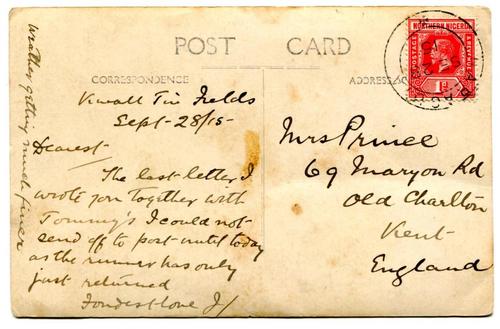 POST CARD
CORRESPONDENCE
Kwall Tin Fields
Sept - 28/15 -
Dearest -
The last letter I
wrote you together with
Tommy's I could not
send off to post until today
as the runner has only
just returned
Fondest love J/
Weather getting much finer
NORTHERN NIGERIA
POSTAGE & REVENUE
1d
ADDRESS
Mrs Prince
69 Maryon Rd
Old Charlton
Kent
England